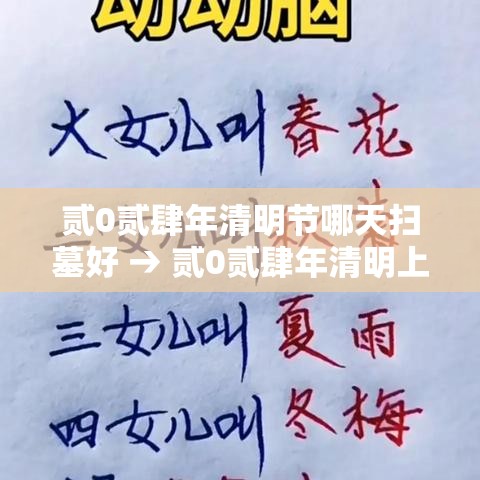 动动脑
大女儿叫春花
贰0贰肆年清明节哪天扫
墓好 → 贰0贰肆年清明上
三女儿叫夏雨
四女儿叫冬梅